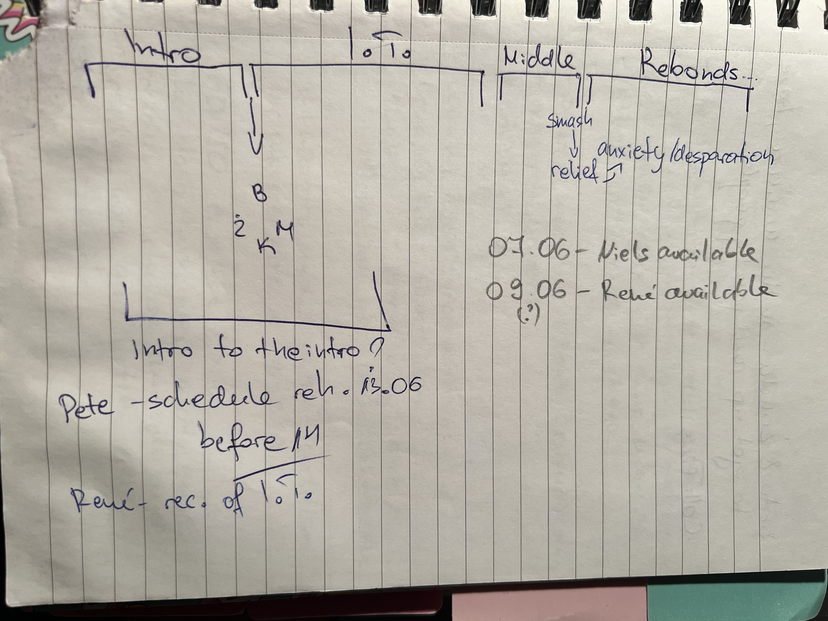 Intro I.T. Middle Rebonds...
smash
anxiety/desparation
relief
B
Ż M
K
07.06 - Niels available
09.06 - René available
(?)
Intro to the intro?
Pete - schedule reh. 13.06
before 14
René - rec. of I.T.